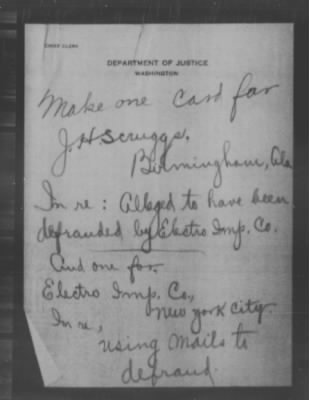 CHIEF CLERK
DEPARTMENT OF JUSTICE
WASHINGTON
Make one card for
J.H. Scruggs,
Birmingham, Ala
In re: Alleged to have been
defrauded by Electro Imp. Co.
And one for
Electro Imp. Co.,
New York City.
In re,
using mails to
defraud.